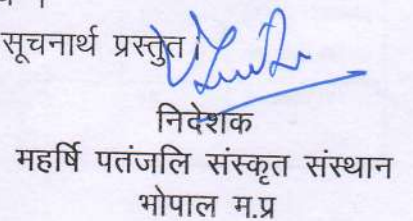 सूचनार्थ प्रस्तुत।
निदेशक
महर्षि पतंजलि संस्कृत संस्थान
भोपाल म.प्र